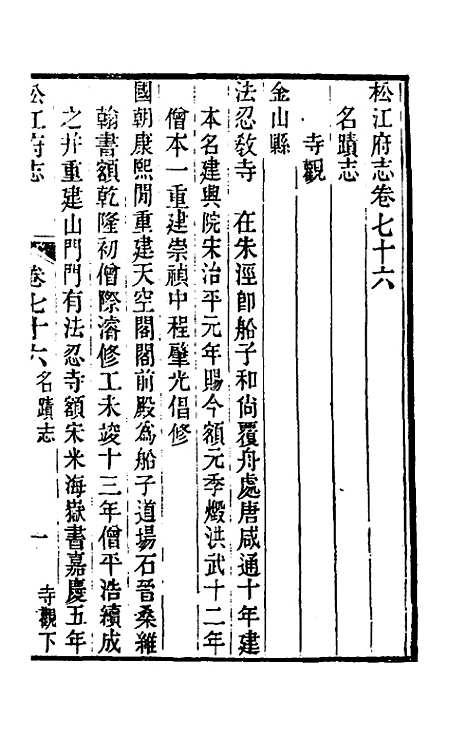 松江府志卷七十六
名蹟志
寺觀
金山縣
法忍敎寺　在朱涇卽船子和尙覆舟處唐咸通十年建
本名建興院宋治平元年賜今額元季燬洪武十二年
僧本一重建崇禎中程肇光倡修
國朝康熙閒重建天空閣閣前殿為船子道場石晉桑維
翰書額乾隆初僧際濬修工未竣十三年僧平浩續成
之幷重建山門門有法忍寺額宋米海嶽書嘉慶五年
松江府志
卷七十六名蹟志
一
寺觀下